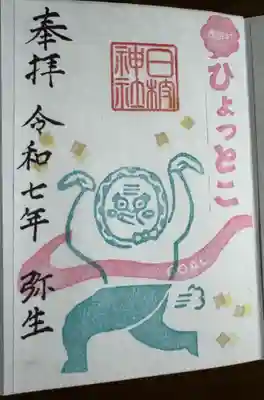 ひょっとこ
日枝
神社
GOAL
奉拝 令和七年 弥生